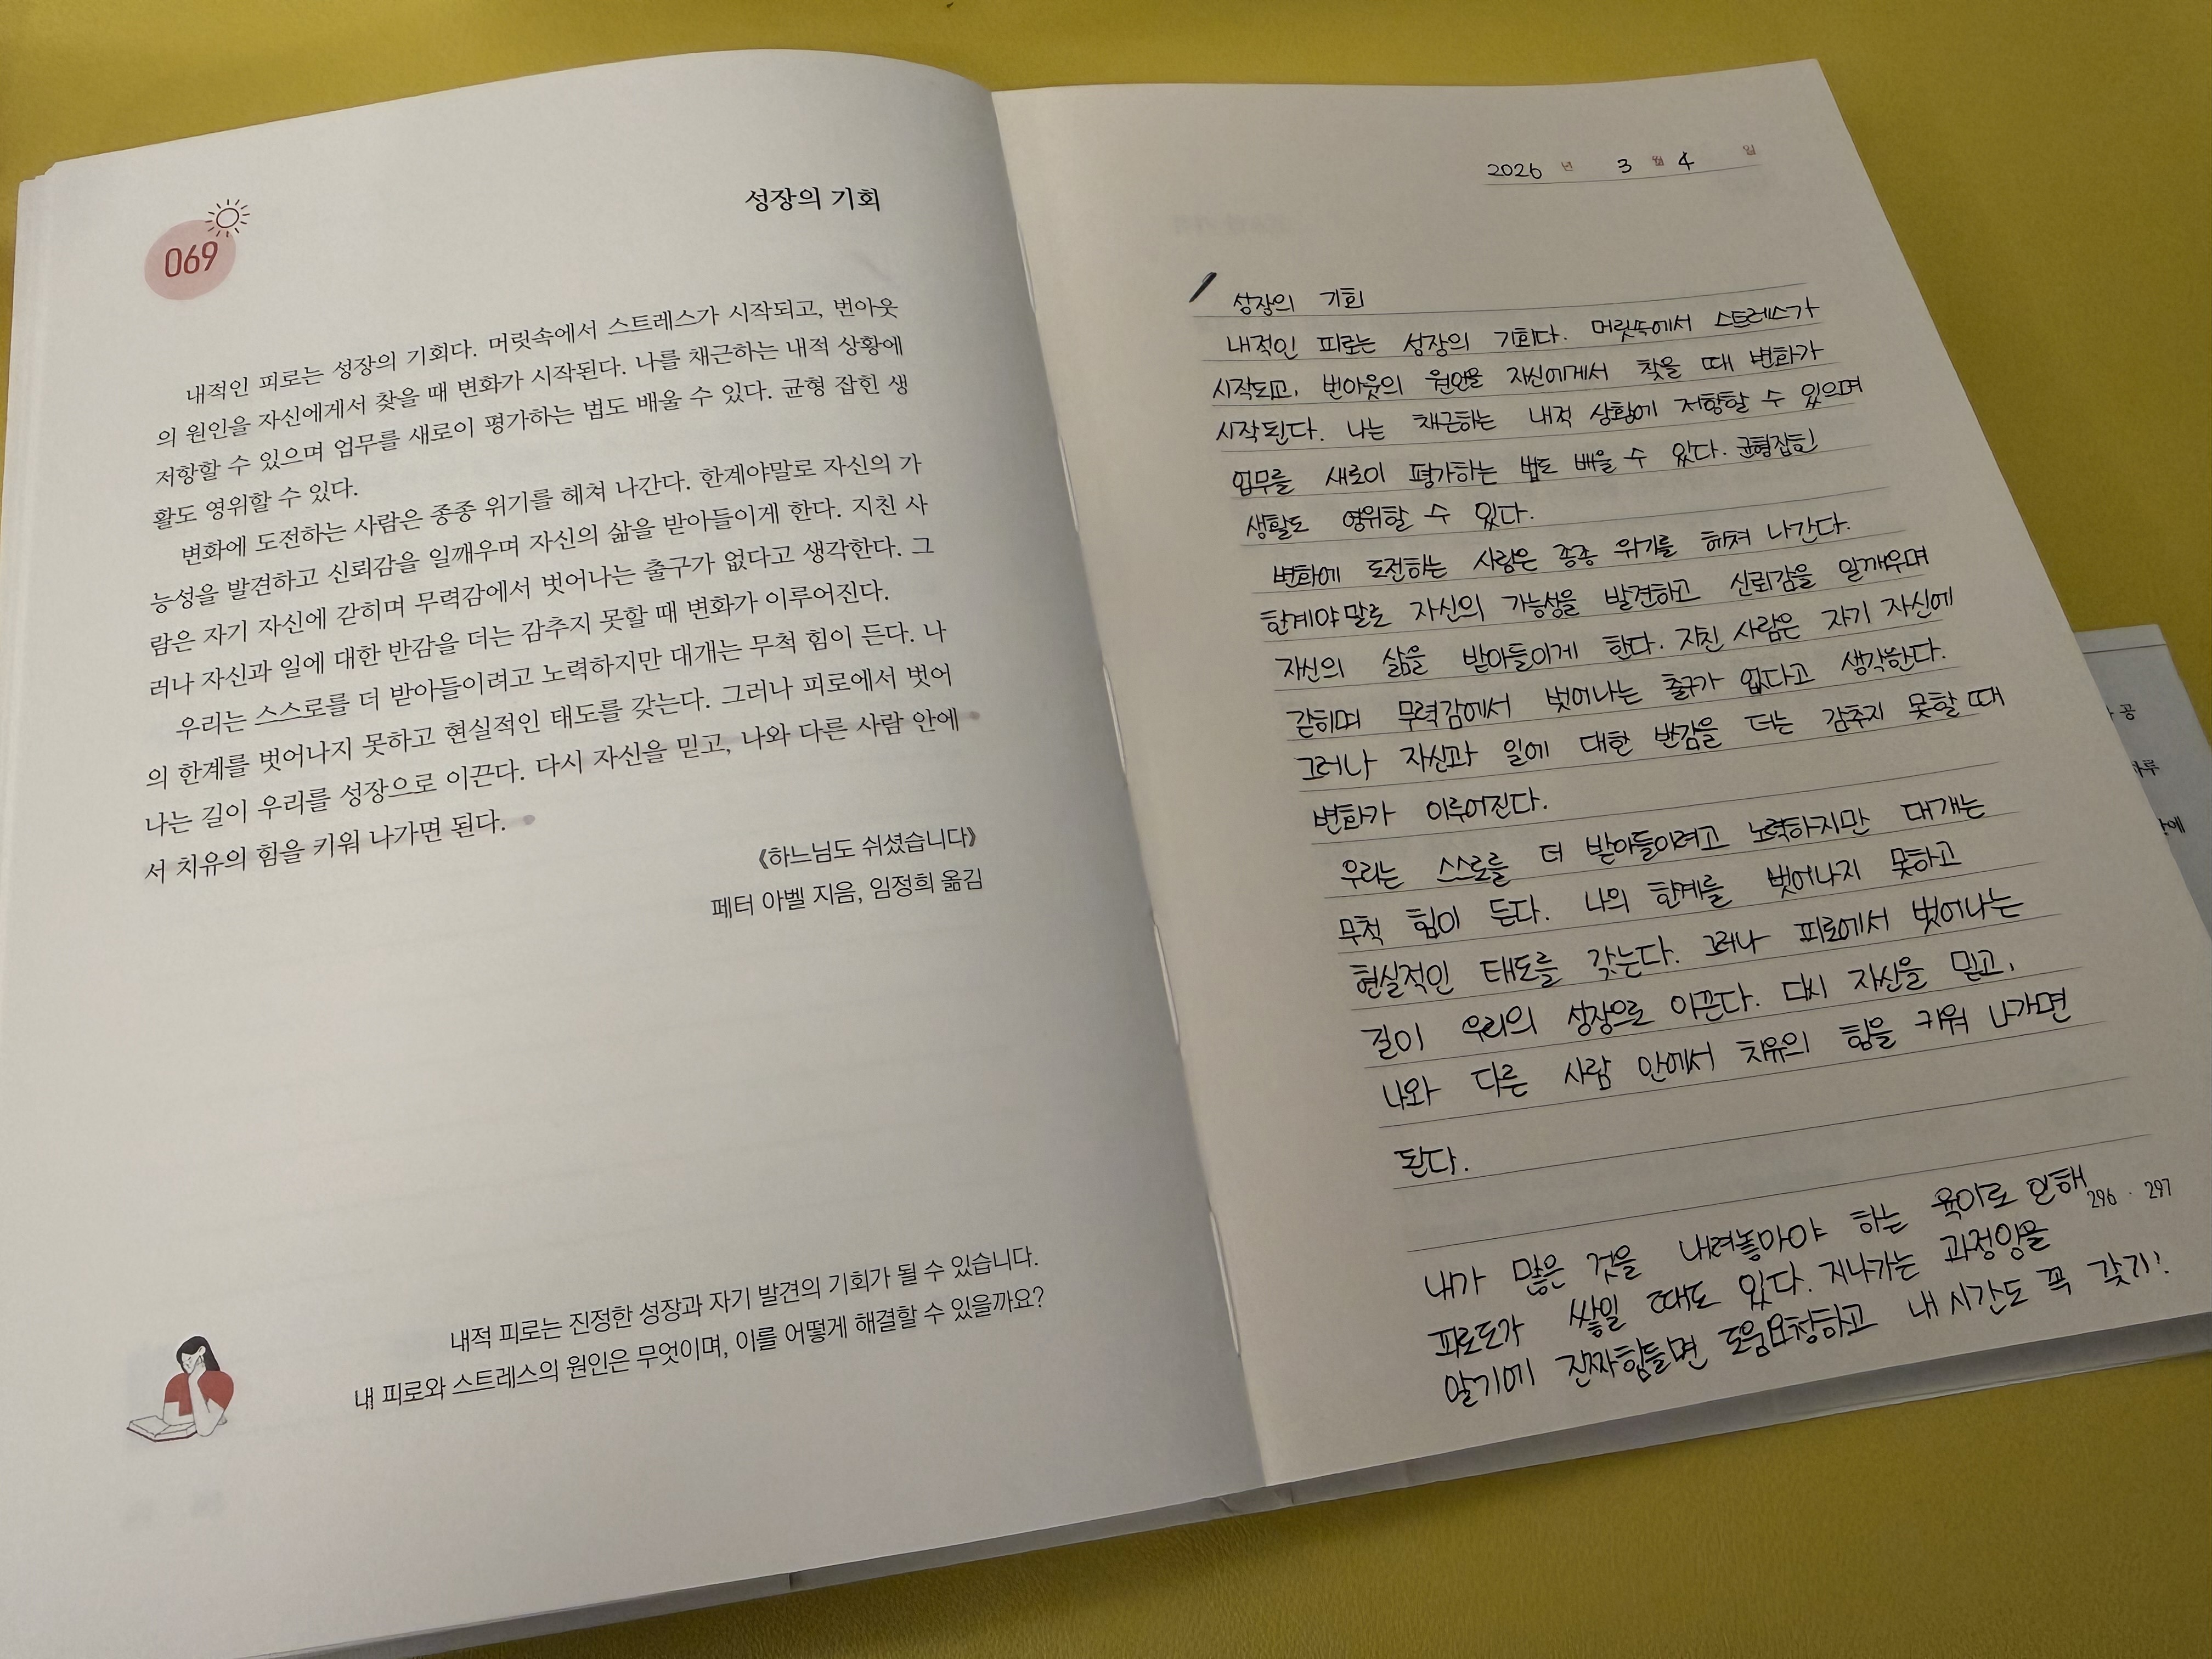 069
성장의 기회
내적인 피로는 성장의 기회다. 머릿속에서 스트레스가 시작되고, 번아웃
의 원인을 자신에게서 찾을 때 변화가 시작된다. 나를 채근하는 내적 상황에
저항할 수 있으며 업무를 새로이 평가하는 법도 배울 수 있다. 균형 잡힌 생
활도 영위할 수 있다.
변화에 도전하는 사람은 종종 위기를 헤쳐 나간다. 한계야말로 자신의 가
능성을 발견하고 신뢰감을 일깨우며 자신의 삶을 받아들이게 한다. 지친 사
람은 자기 자신에 갇히며 무력감에서 벗어나는 출구가 없다고 생각한다. 그
러나 자신과 일에 대한 반감을 더는 감추지 못할 때 변화가 이루어진다.
우리는 스스로를 더 받아들이려고 노력하지만 대개는 무척 힘이 든다. 나
의 한계를 벗어나지 못하고 현실적인 태도를 갖는다. 그러나 피로에서 벗어
나는 길이 우리를 성장으로 이끈다. 다시 자신을 믿고, 나와 다른 사람 안에
서 치유의 힘을 키워 나가면 된다.
《하느님도 쉬셨습니다》
페터 아벨 지음, 임정희 옮김
내적 피로는 진정한 성장과 자기 발견의 기회가 될 수 있습니다.
내 피로와 스트레스의 원인은 무엇이며, 이를 어떻게 해결할 수 있을까요?
2026 년 3 월 4 일
성장의 기회
내적인 피로는 성장의 기회다. 머릿속에서 스트레스가
시작되고, 번아웃의 원인을 자신에게서 찾을 때 변화가
시작된다. 나는 채근하는 내적 상황에 저항할 수 있으며
업무를 새로이 평가하는 법도 배울 수 있다. 균형잡힌
생활도 영위할 수 있다.
변화에 도전하는 사람은 종종 위기를 헤쳐 나간다.
한계야말로 자신의 가능성을 발견하고 신뢰감을 일깨우며
자신의 삶을 받아들이게 한다. 지친 사람은 자기 자신에
갇히며 무력감에서 벗어나는 출구가 없다고 생각한다.
그러나 자신과 일에 대한 반감을 더는 감추지 못할 때
변화가 이루어진다.
우리는 스스로를 더 받아들이려고 노력하지만 대개는
무척 힘이 든다. 나의 한계를 벗어나지 못하고
현실적인 태도를 갖는다. 그러나 피로에서 벗어나는
길이 우리의 성장으로 이끈다. 다시 자신을 믿고,
나와 다른 사람 안에서 치유의 힘을 키워 나가면
된다.
내가 많은 것을 내려놓아야 하는 육아로 인해
296 · 297
피로도가 쌓일 때도 있다. 지나가는 과정임을
알기에 진짜힘들면 도움요청하고 내 시간도 꼭 갖기!
공